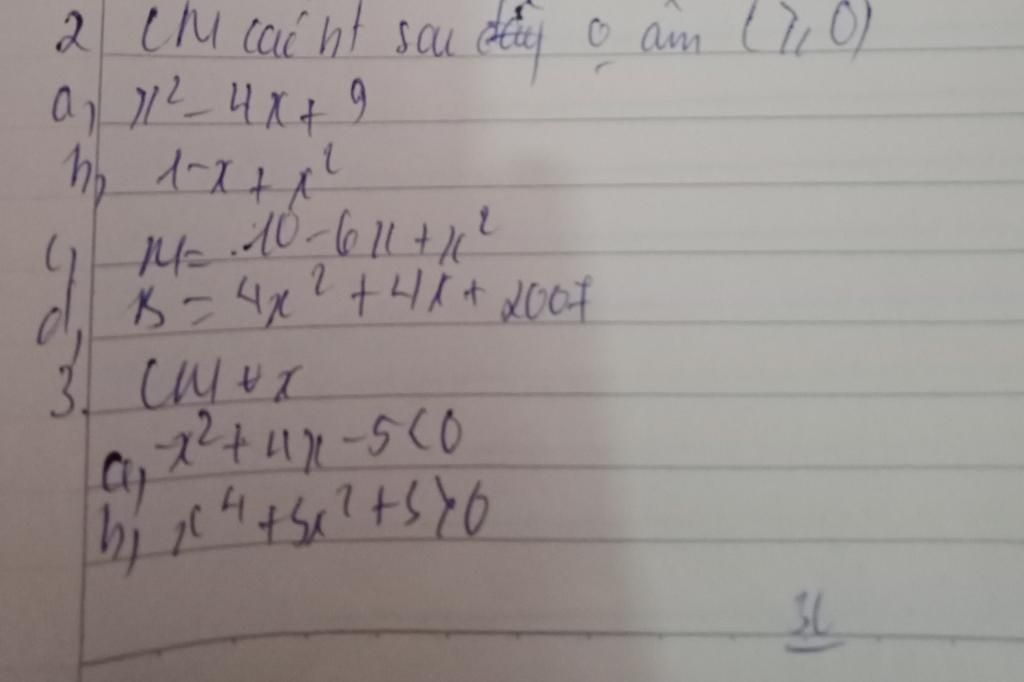 2 CM các bt sau đây o âm (≥ 0)
a, x² - 4x + 9
b, 1 - x + x²
c, M = 10 - 6x + x²
d, B = 4x² + 4x + 2007
3. CM ∀ x
a, -x² + 4x - 5 < 0
b, x⁴ + 3x² + 3 > 0